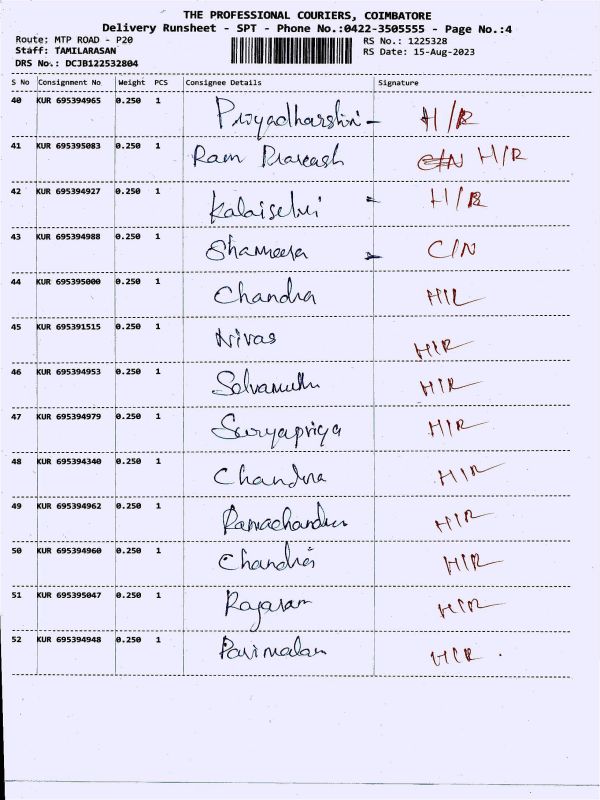 THE PROFESSIONAL COURIERS, COIMBATORE
Delivery Runsheet - SPT - Phone No.:0422-3505555 - Page No.:4
Route: MTP ROAD - P20 RS No.: 1225328
Staff: TAMILARASAN RS Date: 15-Aug-2023
DRS No.: DCJB122532804
S No Consignment No Weight PCS Consignee Details Signature
40 KUR 695394965 0.250 1 Priyadharshini - H/R
41 KUR 695395083 0.250 1 Ram Prakash C/N H/R
42 KUR 695394927 0.250 1 Kalaiselvi - H/R
43 KUR 695394988 0.250 1 Shameera - C/N
44 KUR 695395000 0.250 1 Chandra HIR
45 KUR 695391515 0.250 1 Nivas HIR
46 KUR 695394953 0.250 1 Selvamuthu HIR
47 KUR 695394979 0.250 1 Suryapriya HIR
48 KUR 695394340 0.250 1 Chandra HIR
49 KUR 695394962 0.250 1 Ramachandran HIR
50 KUR 695394960 0.250 1 Chandra HIR
51 KUR 695395047 0.250 1 Rajaram HIR
52 KUR 695394948 0.250 1 Parimalam HIR .